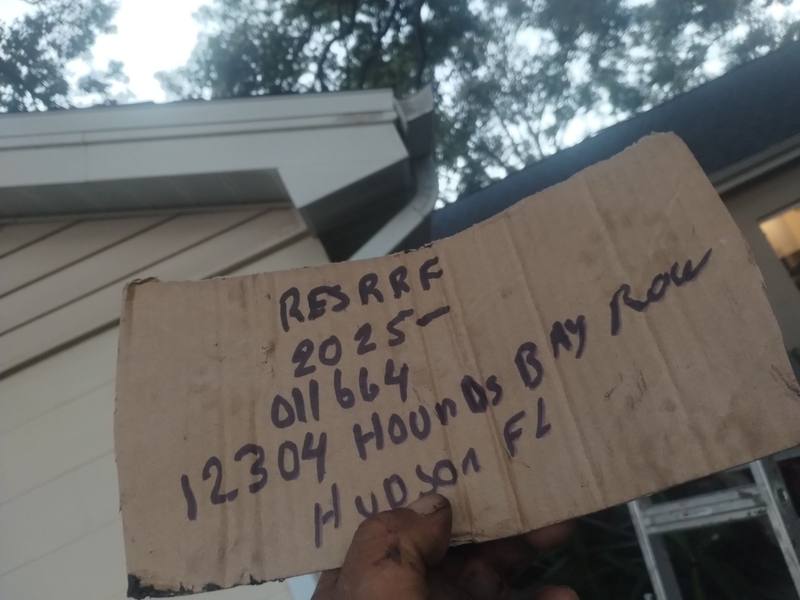 RESRRF
2025-
011664
12304 HOUnDs BAY ROW
HuDson FL